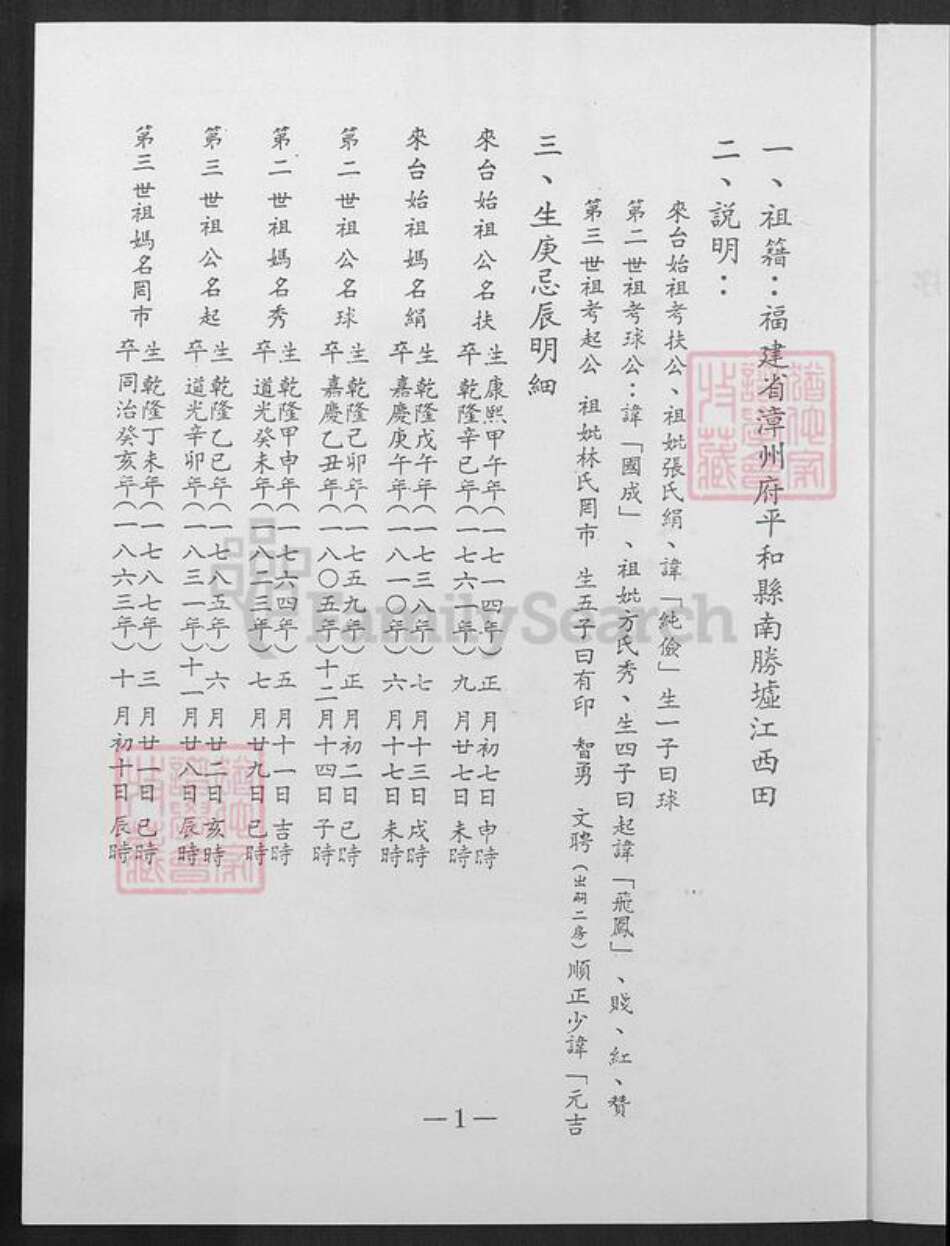 一、祖籍：福建省漳州府平和縣南勝墟江西田
二、說明：
來台始祖考扶公、祖妣張氏絹、諱「純儉」生一子曰球
第二世祖考球公：諱「國成」、祖妣方氏秀、生四子曰起諱「飛鳳」、賤、紅、賛
第三世祖考起公 祖妣林氏罔市 生五子曰有印 智勇 文聘（出嗣二房）順正少諱「元吉
三、生庚忌辰明細
來台始祖公名扶
生康熙甲午年（一七一四年）正月初七日申時
卒乾隆辛巳年（一七六一年）九月廿七日未時
來台始祖媽名絹
生乾隆戊午年（一七三八年）七月十三日戌時
卒嘉慶庚午年（一八一〇年）六月十七日未時
第二世祖公名球
生乾隆己卯年（一七五九年）正月初二日巳時
卒嘉慶乙丑年（一八〇五年）十二月十四日子時
第二世祖媽名秀
生乾隆甲申年（一七六四年）五月十一日吉時
卒道光癸未年（一八二三年）七月廿九日巳時
第三世祖公名起
生乾隆乙巳年（一七八五年）六月廿二日亥時
卒道光辛卯年（一八三一年）十一月廿八日辰時
第三世祖媽名罔市
生乾隆丁未年（一七八七年）三月廿一日巳時
卒同治癸亥年（一八六三年）十月初十日辰時
—1—
FamilySearch
序